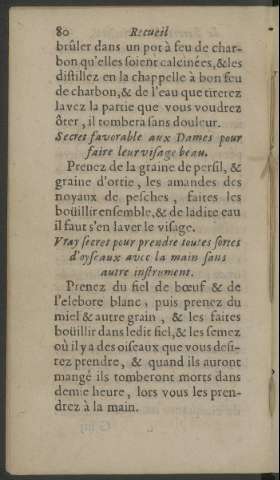 80 Recueil
brûler dans un pot à feu de char-
bon qu'elles soient calcinées, &les
distillez en la chappelle à bon feu
de charbon, & de l'eau que tirerez
lavez la partie que vous voudrez
ôter, il tombera sans douleur.
Secret favorable aux Dames pour
faire leur visage beau.
Prenez de la graine de persil, &
graine d'ortie, les amandes des
noyaux de pesches, faites les
boüillir ensemble, & de ladite eau
il faut s'en laver le visage.
Vray secret pour prendre toutes sortes
d'oyseaux avec la main sans
autre instrument.
Prenez du fiel de bœuf & de
l'elebore blanc, puis prenez du
miel & autre grain, & les faites
boüillir dans ledit fiel, & les semez
où il y a des oiseaux que vous desi-
rez prendre, & quand ils auront
mangé ils tomberont morts dans
demie heure, lors vous les pren-
drez à la main.